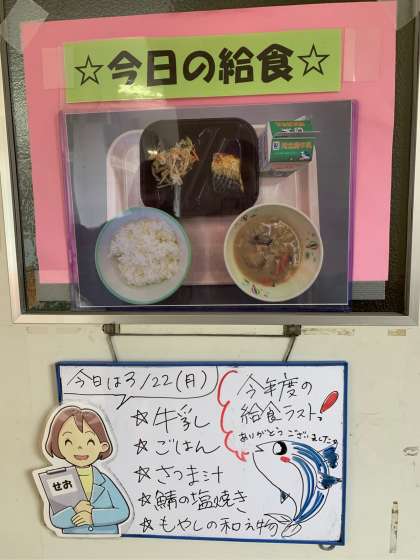 ☆今日の給食☆
今日は3/22(月)
☆牛乳
☆ごはん
☆さつま汁
☆鯖の塩焼き
☆もやしの和え物
今年度の
給食ラスト!
ありがとうございました。
せお